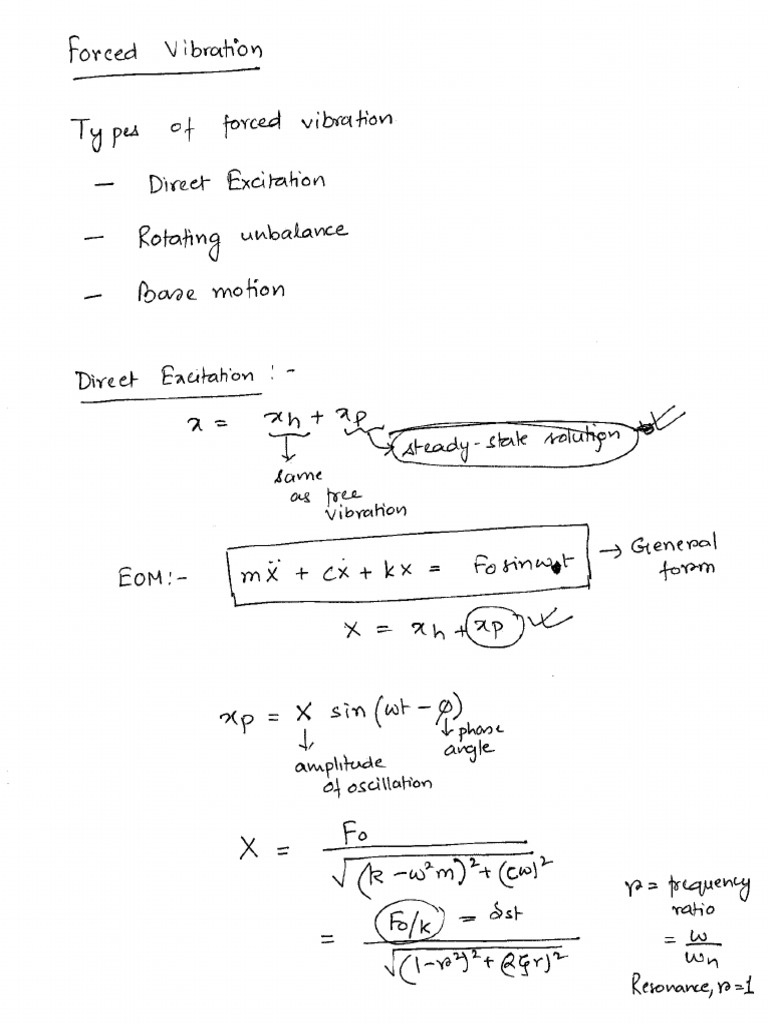 Forced Vibration
Types of forced vibration
— Direct Excitation
— Rotating unbalance
— Base motion
Direct Excitation :-
x = xh + xp
steady-state solution
same
as free
vibration
EOM:- mẍ + cẋ + kx = F0 sinωt → General
form
x = xh + xp
xp = X sin (ωt - φ)
phase
angle
amplitude
of oscillation
X = F0 / √((k - ω²m)² + (cω)²)
= F0/k = δst / √((1-r²)² + (2ξr)²)
r = frequency
ratio
= ω/ωn
Resonance, r=1